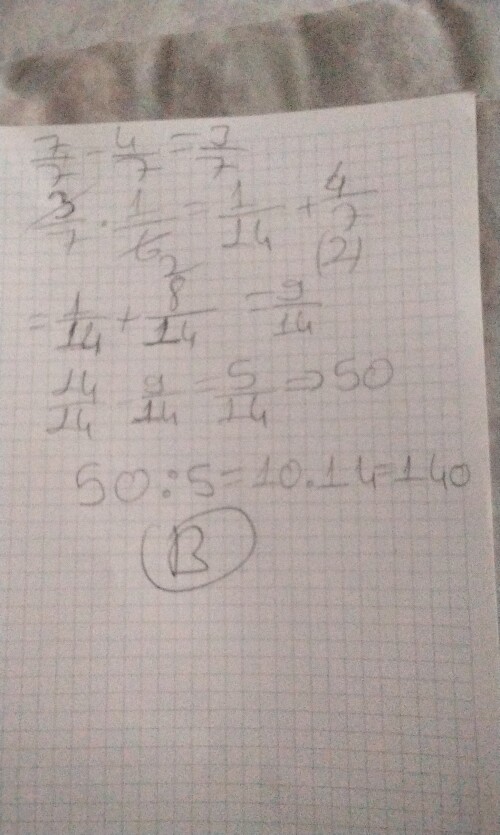 7/7 - 4/7 = 3/7
3/7 · 1/6 2 = 1/14 + 4/7 (2)
= 1/14 + 8/14 = 9/14
14/14 9/14 = 5/14 => 50
50:5=10.14=140
B